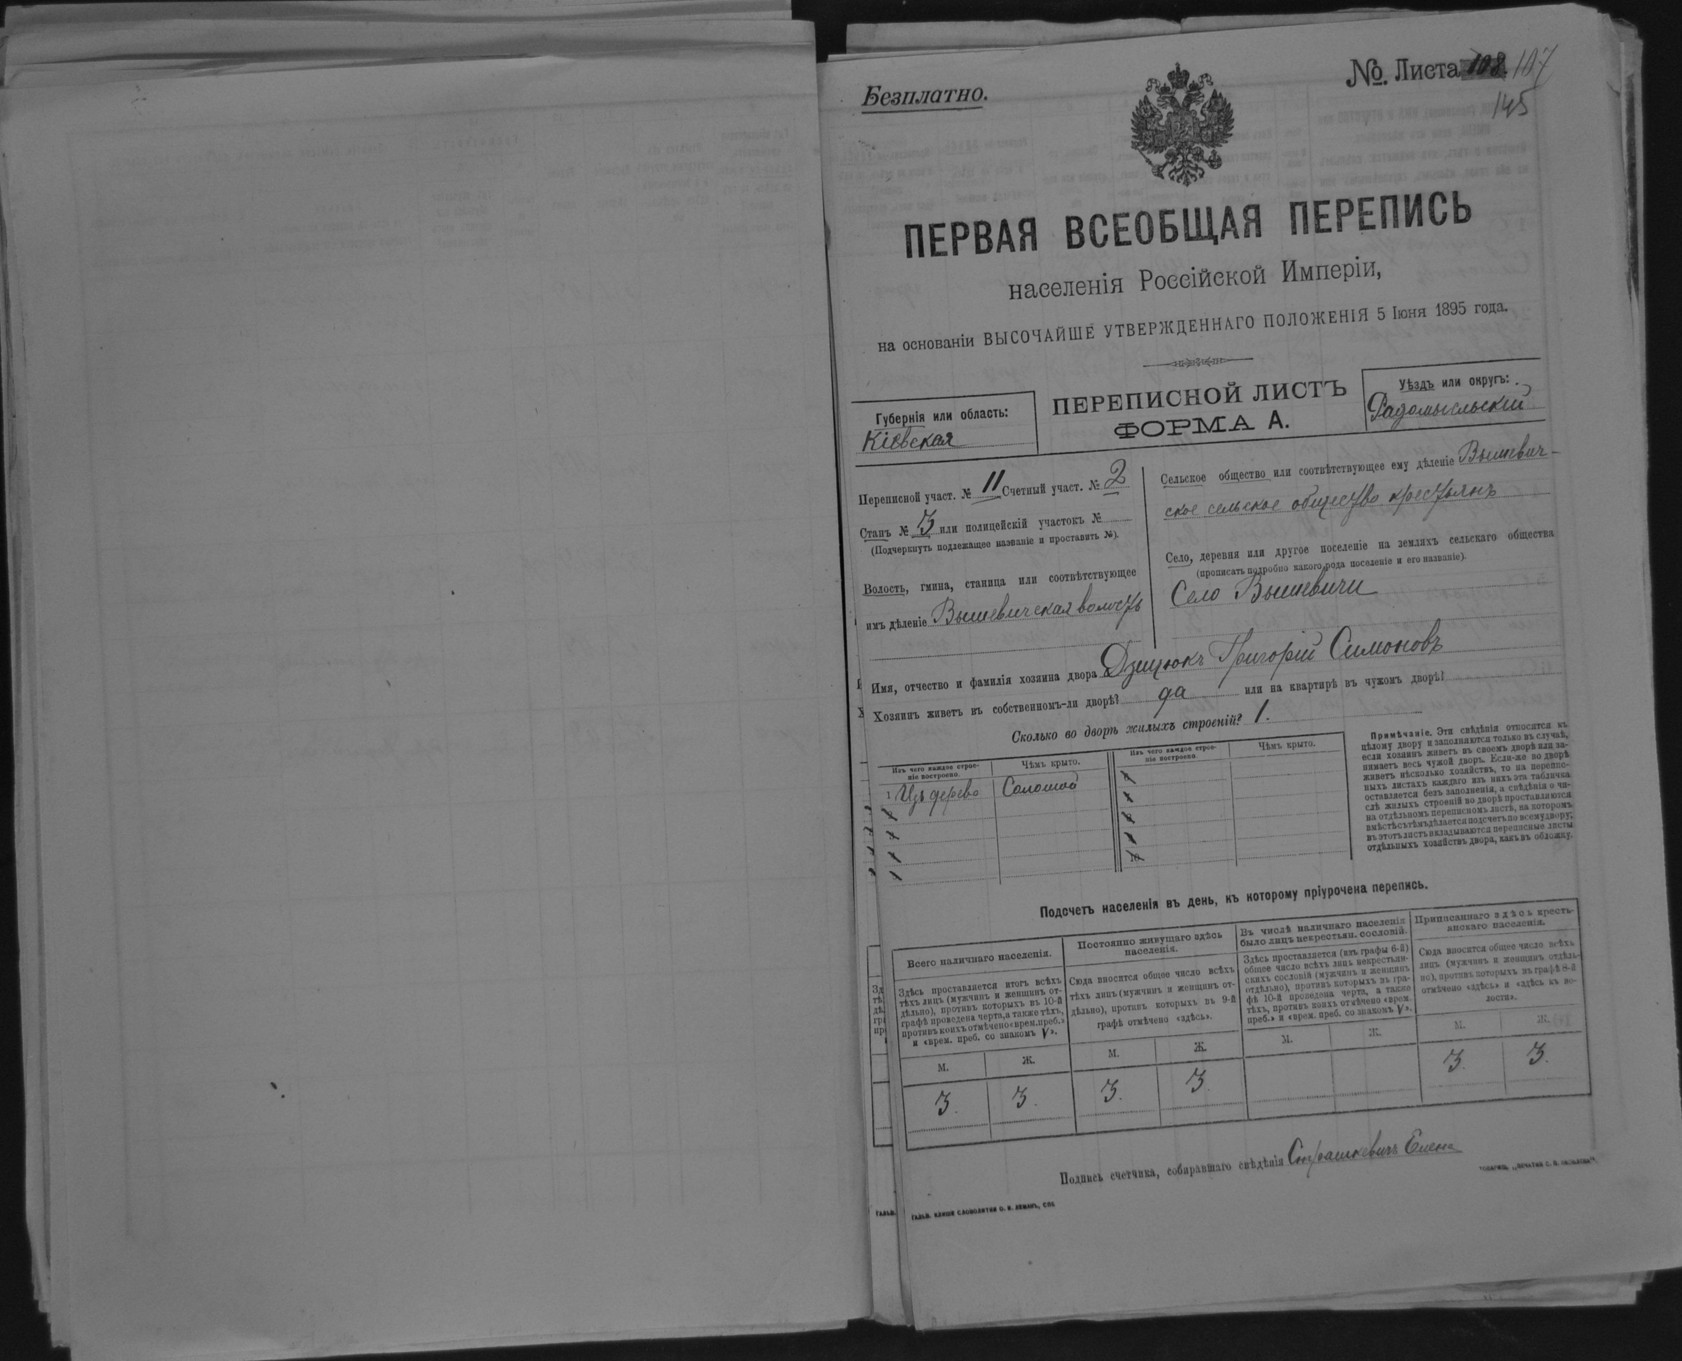 Безплатно.
№ Листа 108. 107
145
ПЕРВАЯ ВСЕОБЩАЯ ПЕРЕПИСЬ
населенія Россійской Имперіи,
на основаніи ВЫСОЧАЙШЕ УТВЕРЖДЕННАГО ПОЛОЖЕНІЯ 5 Іюня 1895 года.
Губернія или область:
Кіевская
ПЕРЕПИСНОЙ ЛИСТЪ
ФОРМА А.
Уѣздъ или округъ:
Радомысльскій
Переписной участ. № 11 Счетный участ. № 2
Станъ № 3 или полицейскій участокъ №
(Подчеркнуть подлежащее названіе и проставить №).
Волость, гмина, станица или соотвѣтствующее
имъ дѣленіе Вышевичская волость
Сельское общество или соотвѣтствующее ему дѣленіе Вышевич-
ское сельское общество крестьянъ
Село, деревня или другое поселеніе на земляхъ сельскаго общества
(прописать подробно какого рода поселеніе и его названіе).
Село Вышевичи
Имя, отчество и фамилія хозяина двора Дзицюкъ Григорій Симоновъ
Хозяинъ живетъ въ собственномъ-ли дворѣ? да или на квартирѣ въ чужомъ дворѣ?
Сколько во дворѣ жилыхъ строеній? 1.
Изъ чего каждое строе-
ніе построено.
Чѣмъ крыто.
Изъ чего каждое строе-
ніе построено.
Чѣмъ крыто.
1 Изъ дерева Соломой
10
Примѣчаніе. Эти свѣдѣнія относятся къ
цѣлому двору и заполняются только въ случаѣ,
если хозяинъ живетъ въ своемъ дворѣ или за-
нимаетъ весь чужой дворъ. Если-же во дворѣ
живетъ нѣсколько хозяйствъ, то на перепис-
ныхъ листахъ каждаго изъ нихъ эта табличка
оставляется безъ заполненія, а свѣдѣнія о чи-
слѣ жилыхъ строеній во дворѣ проставляются
на отдѣльномъ переписномъ листѣ, на которомъ
вмѣстѣ съ тѣмъ дѣлается подсчетъ по всему двору;
въ этотъ листъ вкладываются переписные листы
отдѣльныхъ хозяйствъ двора, какъ въ обложку.
Подсчетъ населенія въ день, къ которому пріурочена перепись.
Всего наличнаго населенія.
Здѣсь проставляется итогъ всѣхъ
тѣхъ лицъ (мужчинъ и женщинъ от-
дѣльно), противъ которыхъ въ 10-й
графѣ проведена черта, а также тѣхъ,
противъ коихъ отмѣчено «врем. преб.»
и «врем. преб. со знакомъ V».
М. Ж.
3. 3.
Постоянно живущаго здѣсь
населенія.
Сюда вносится общее число всѣхъ
тѣхъ лицъ (мужчинъ и женщинъ от-
дѣльно), противъ которыхъ въ 9-й
графѣ отмѣчено «здѣсь».
М. Ж.
3. 3.
Въ числѣ наличнаго населенія
было лицъ некрестьян. сословій.
Здѣсь проставляется (изъ графы 6-й)
общее число всѣхъ лицъ некрестьян-
скихъ сословій (мужчинъ и женщинъ
отдѣльно), противъ которыхъ въ гра-
фѣ 10-й проведена черта, а также
тѣхъ, противъ коихъ отмѣчено «врем.
преб.» и «врем. преб. со знакомъ V».
М. Ж.
Приписаннаго здѣсь кресть-
янскаго населенія.
Сюда вносится общее число всѣхъ
лицъ (мужчинъ и женщинъ отдѣль-
но), противъ которыхъ въ графѣ 8-й
отмѣчено «здѣсь» и «здѣсь къ во-
лости».
М. Ж.
3. 3.
Подпись счетчика, собиравшаго свѣдѣнія Елена
ГАЛЬВ. КЛИШЕ СЛОВОЛИТНИ О. И. ЛЕМАНЪ, СПБ.